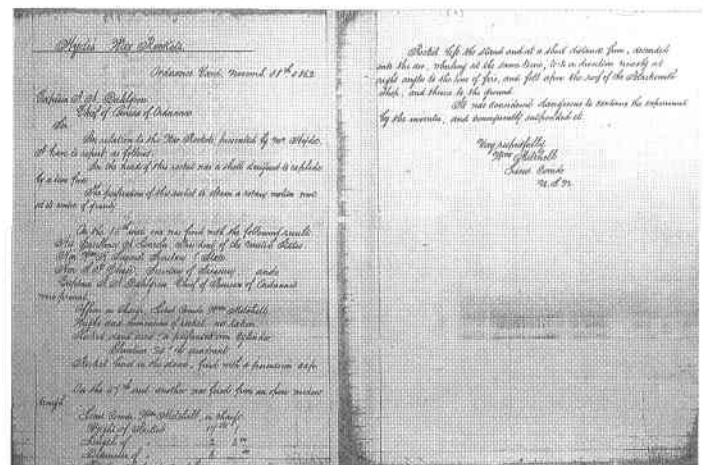 Hyde's War Rockets.
Ordnance Yard, Novemb. 18th 1862
Captain J. A. Dahlgren
Chef of Bureau of Ordnance
Sir
In relation to the War Rockets, presented by Mr Hyde,
I have to report, as follows.
In the head of this rocket was a shell designed to explode
by a time fuse
The profession of this rocket is to obtain a rotary motion
at its centre of gravity
On the 15th inst one was fired with the following result
His Excellency A. Lincoln, President of the United States
Hon Wm H Seward Secretary of State
Hon S. P. Chase, Secretary of Treasury and
Captain J. A. Dahlgren Chief of Bureau of Ordnance
were present.
Officer in charge, Lieut Comdr Wm Mitchell
Weight and dimensions of rocket not taken
Rocket stand used - a perforated iron cylinder
Elevation by quadrant
Rocket burst in the stand, fired with a percussion cap
On the 17th inst another was fired from an open wooden
trough
Lieut Comdr Wm Mitchell, in charge
Weight of Rocket
Length of "
Diameter of "
Rocket left the stand and at a short distance from, descended
into the sea, whirling at the same time, to a direction nearly at
right angles to the line of fire, and fell upon the roof of the Blacksmith
Shop, and thence to the ground
It was considered dangerous to continue the experiment
by the inventor, and consequently suspended it.
Very respectfully
Wm Mitchell
Lieut Comdr
U.S.N.